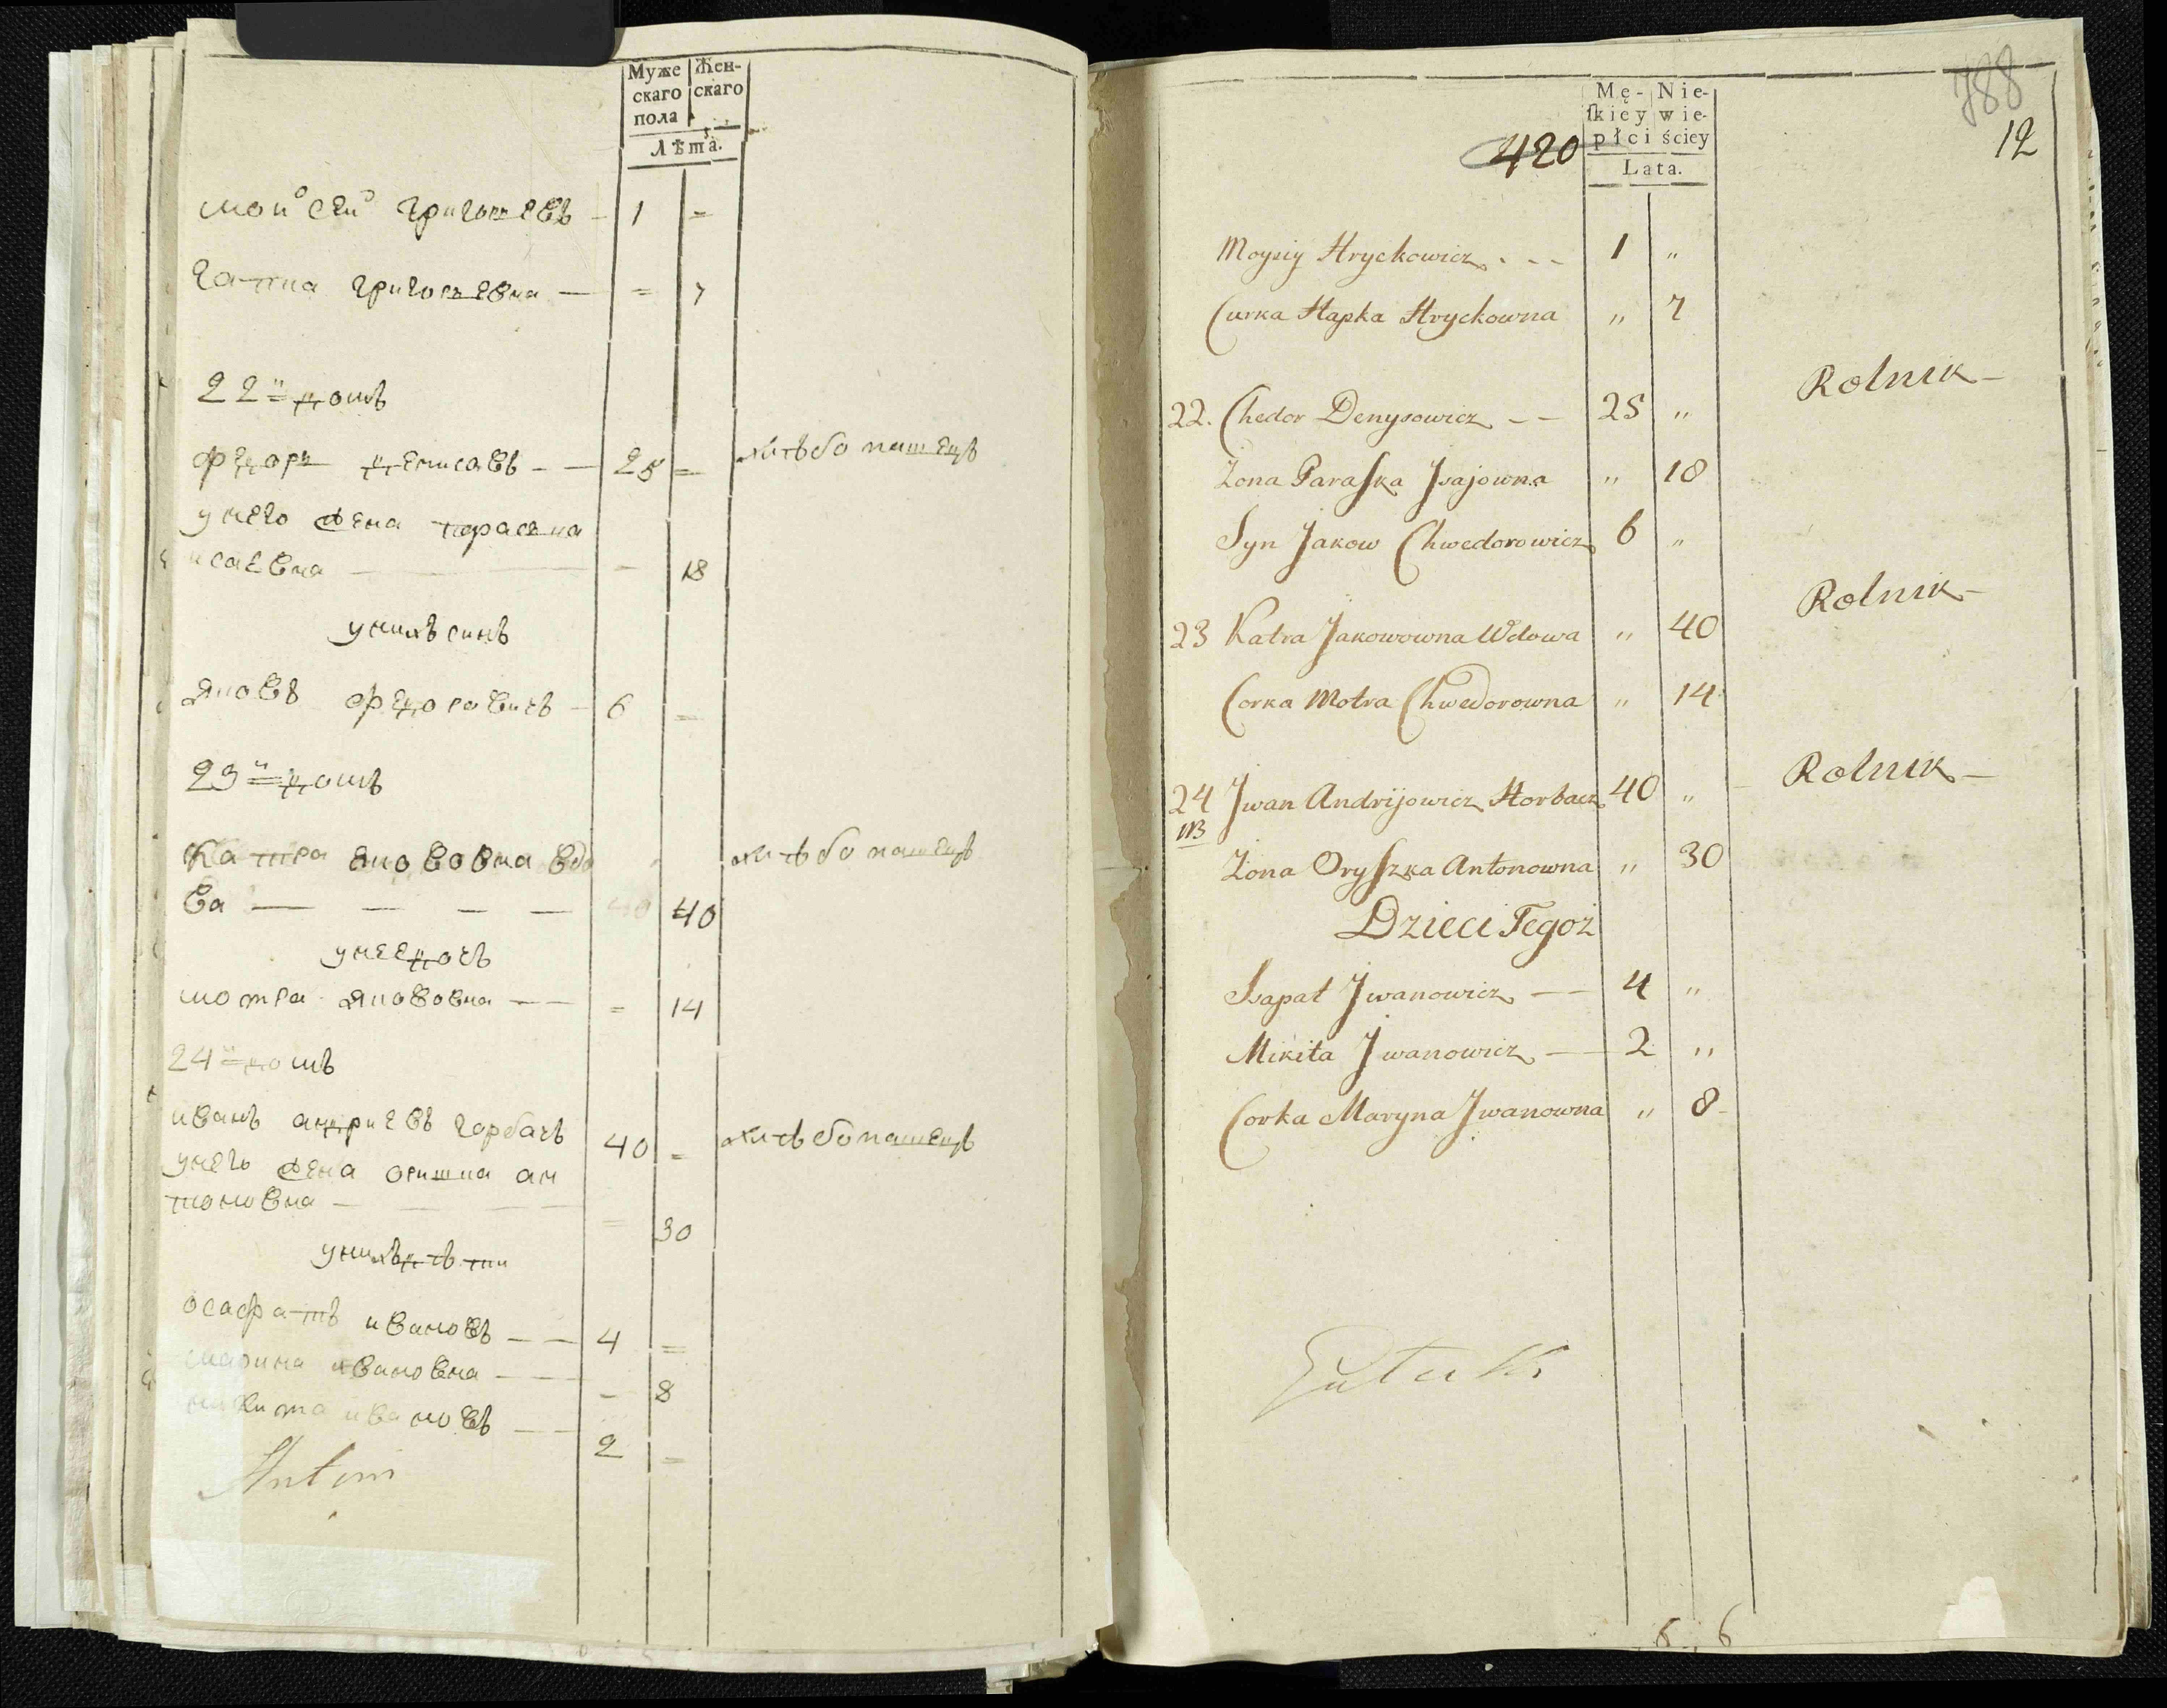 Муже
скаго
пола
Жен-
скаго
Лѣта.
моисей григоревъ – 1 =
гапка григоревна – = 7
22й домъ
федоръ денисовъ – – 25 = хлѣбопашецъ
унего жена параска
исаевна – – 18
унихъ синъ
яковъ федоровичъ – 6 =
23й домъ
Катра якововна вдо хлѣбопашецъ
ва – – – – 40
унее дочь
мотра якововна – – = 14
24й домъ
иванъ андриевъ горбачъ 40 = хлѣбопашецъ
унего жена оришка ан
тоновна – – – = 30
унихъ дѣти
осафатъ ивановъ – – 4 =
марина ивановна – – – 8
никита ивановъ – – 2 =
Antoni
788
12
420
Mę-
ſkiey
płci
Nie-
wie-
ściey
Lata.
Moysiy Hryckowicz . – – 1 "
Curka Hapka Hryckowna " 7
22. Chedor Denysowicz – – 25 " Rolnik –
Żona Paraſka Jsajowna " 18
Syn Jakow Chwedorowicz 6 "
23 Katra Jakowowna Wdowa " 40 Rolnik –
Corka Motra Chwedorowna " 14
24 Jwan Andrijowicz Horbacz 40 " – Rolnik –
NB
Żona Oryſzka Antonowna " 30
Dzieci Tegoż
Jsapat Jwanowicz – – 4 "
Mikita Jwanowicz – – 2 "
Corka Maryna Jwanowna " 8 –
6 6